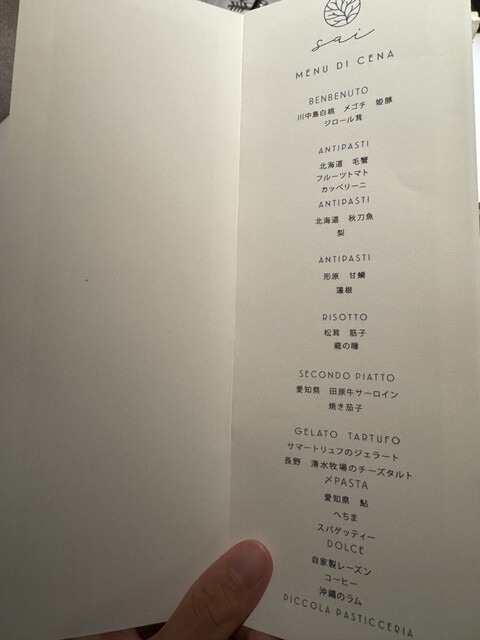 sai
MENU DI CENA
BENBENUTO
川中島白桃　メゴチ　姫豚
ジロール茸
ANTIPASTI
北海道　毛蟹
フルーツトマト
カッペリーニ
ANTIPASTI
北海道　秋刀魚
梨
ANTIPASTI
形原　甘鯛
蓮根
RISOTTO
松茸　筋子
龍の瞳
SECONDO PIATTO
愛知県　田原牛サーロイン
焼き茄子
GELATO TARTUFO
サマートリュフのジェラート
長野　清水牧場のチーズタルト
〆PASTA
愛知県　鮎
へちま
スパゲッティー
DOLCE
自家製レーズン
コーヒー
沖縄のラム
PICCOLA PASTICCERIA